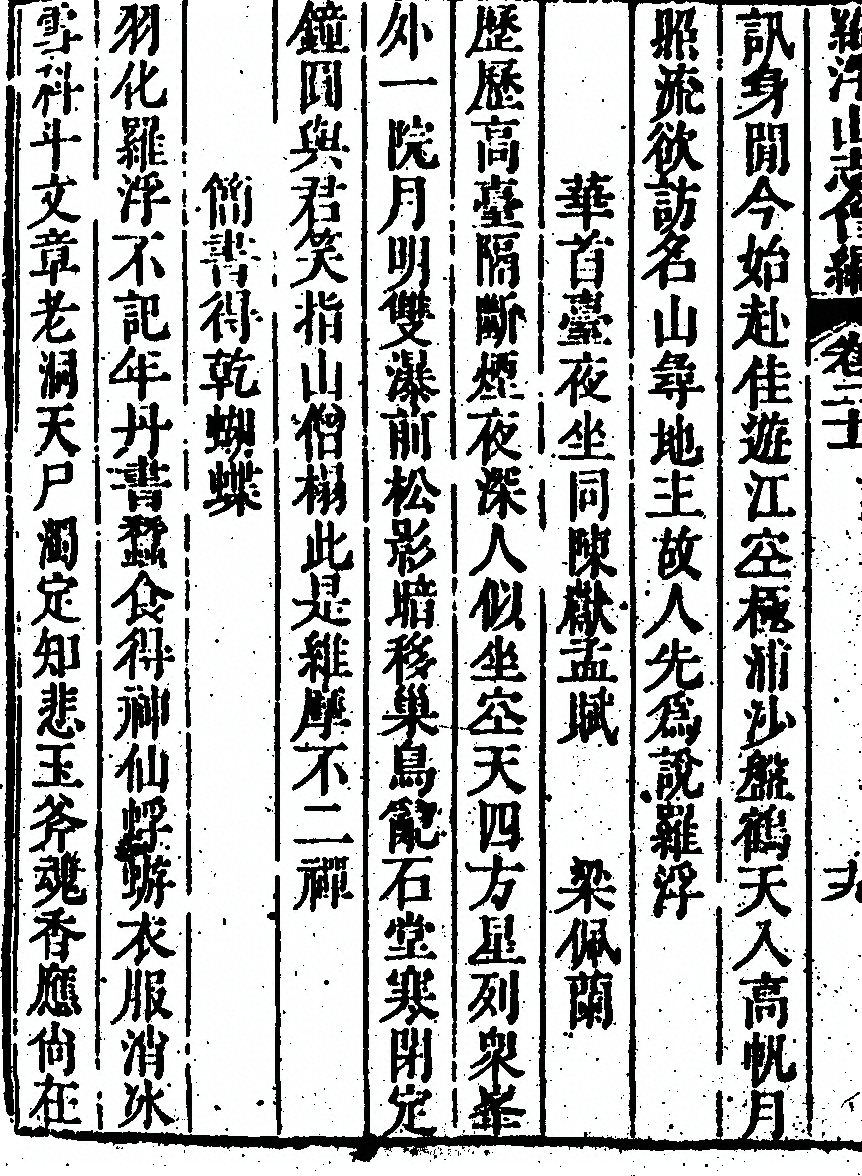 羅浮山志會編 卷二十 九
訊身閒今始赴佳遊江空極浦沙盤鶴天入高帆月
照流欲訪名山尋地主故人先爲說羅浮
華首臺夜坐同陳獻孟賦 梁佩蘭
歷歷高臺隔斷煙夜深人似坐空天四方星列衆峯
外一院月明雙瀑前松影暗移巢鳥亂石堂寒閉定
鐘圓與君笑指山僧榻此是維摩不二禪
簡書得乾蝴蝶
羽化羅浮不記年丹書蠹食得神仙蜉蝣衣服消冰
雪科斗文章老洞天尸濁定知悲玉斧魂香應尙在